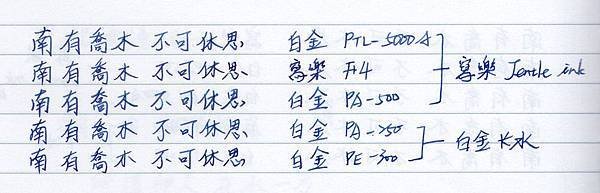 南有喬木 不可休思 白金 PTL-5000A
南有喬木 不可休思 寫樂 #4 寫樂 Jentle ink
南有喬木 不可休思 白金 PA-500
南有喬木 不可休思 白金 PA-250
南有喬木 不可休思 白金 PE-300 白金卡水